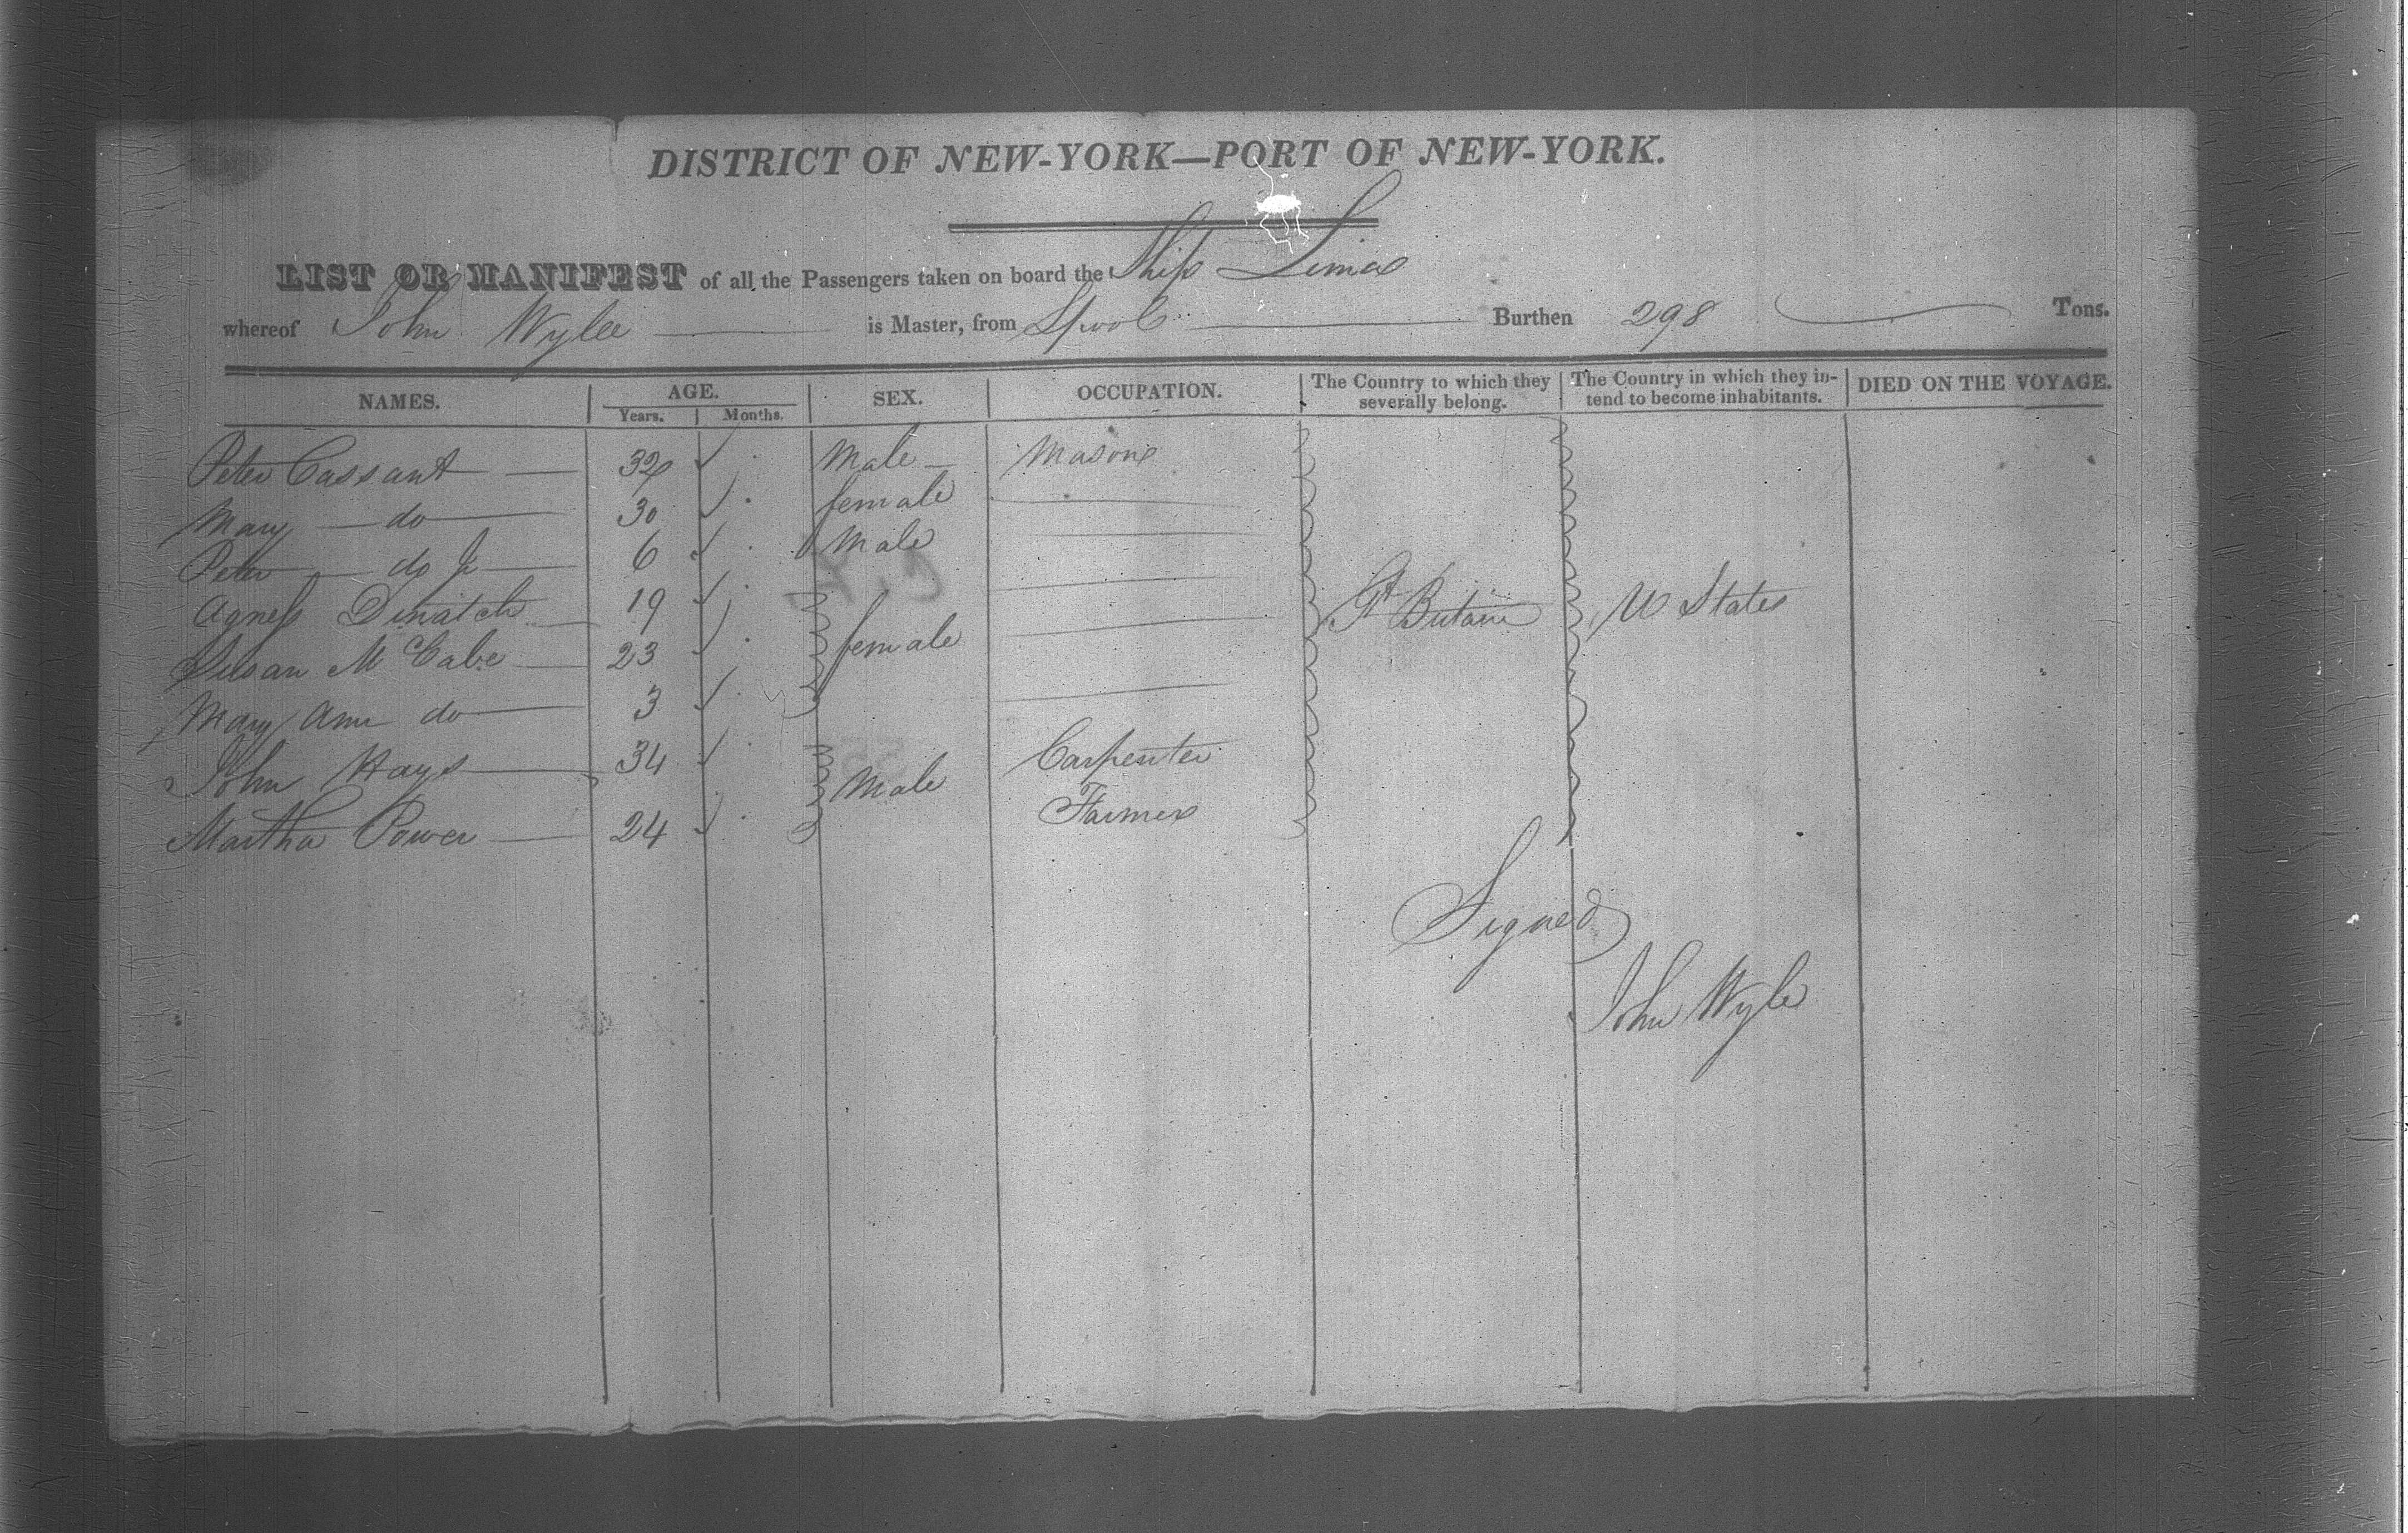 DISTRICT OF NEW-YORK—PORT OF NEW-YORK.
LIST OR MANIFEST of all the Passengers taken on board the Ship Lima
whereof John Wylee is Master, from Lpool Burthen 298 Tons.
NAMES. AGE. Years. Months. SEX. OCCUPATION. The Country to which they severally belong. The Country in which they intend to become inhabitants. DIED ON THE VOYAGE.
Peter Cassant 32 Male Mason
Mary do 30 female
Peter do Jr 6 Male
Agness 19 Gt Britain U States
Susan McCabe 23 female
Mary Ann do 3
John Hays 34 Carpenter
Male
Martha Power 24 Farmer
Signed
John Wyle